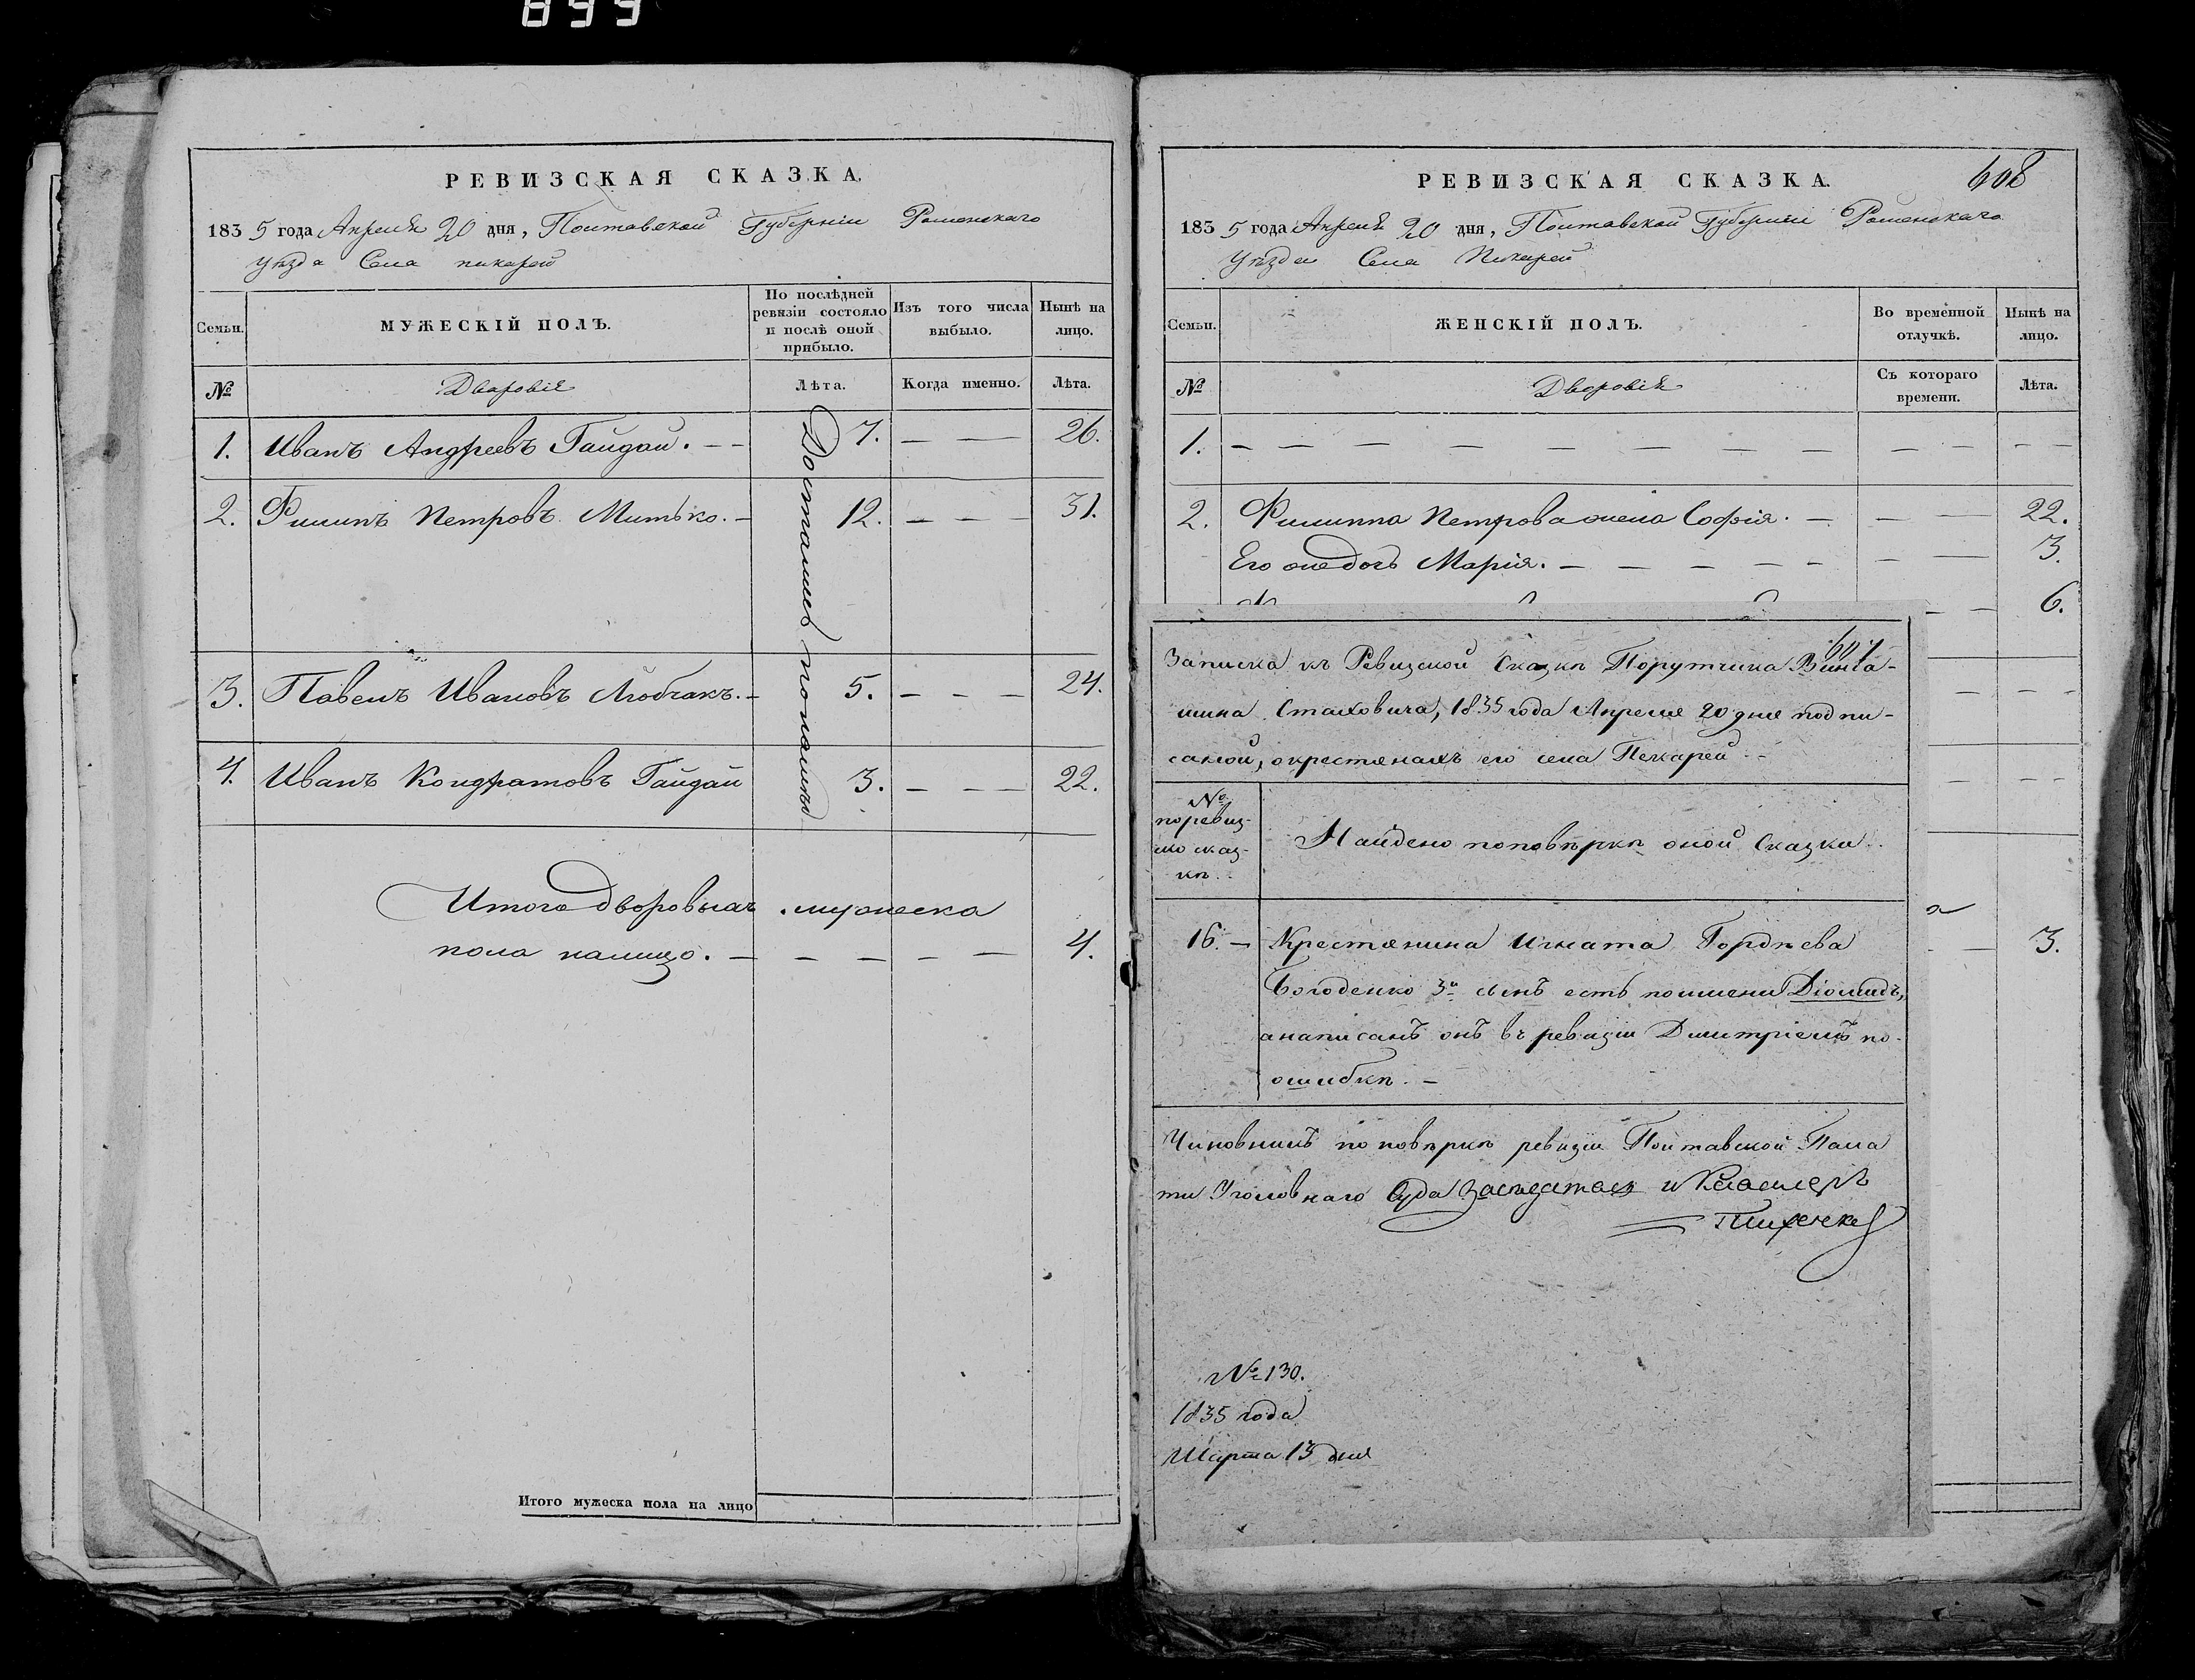 899
РЕВИЗСКАЯ СКАЗКА.
1835 года Апреля 20 дня, Полтавской Губернии Роменскаго
уѣзда Села пикарей
Семьи.
МУЖЕСКІЙ ПОЛЪ.
По послѣдней ревизіи состояло и послѣ оной прибыло.
Изъ того числа выбыло.
Нынѣ на лицо.
№
Дворовія
Лѣта.
Когда именно.
Лѣта.
1. Иванъ Андреевъ Гайдай. — — 7. — — 26.
2. Филипъ Петровъ Митько. — 12. — — — 31.
3. Павелъ Ивановъ Любчакъ. — 5. — — — 24.
4. Иванъ Кондратовъ Гайдай 3. — — — 22.
Итого дворовыхъ мужеска
пола налицо. — — — — — — 4.
Итого мужеска пола на лицо
РЕВИЗСКАЯ СКАЗКА.
608
1835 года Апреля 20 дня, Полтавской Губернии Роменскаго
Уѣзда Села Пикарей
Семьи.
ЖЕНСКІЙ ПОЛЪ.
Во временной отлучкѣ.
Нынѣ на лицо.
№
Дворовія
Съ котораго времени.
Лѣта.
1. — — — — — — — — — — — —
2. Филиппа Петрова жена Софія. — — — 22.
Его же дочь Марія. — — — — — — — 3.
— — 6.
— — 3.
607
Записка къ Ревизской Сказкѣ Порутчика
Стаховича, 1835 года Апреля 20 дня подпи-
саной, окрестянахъ его села Пекарей
№ поревиз-
ско сказ-
кѣ
Найдено поповѣркѣ оной Сказки
16. — Крестянина Игната Гордѣева
Богоденко 3й сынъ есть поимени Діомидъ,
анаписанъ онъ въ ревизіи Димитріемъ по
ошибкѣ. —
Чиновникъ по повѣркѣ ревизіи Полтавской Пала
ти Уголовнаго Суда Заседатель и Кавалеръ
№ 130.
1835 года
Марта 13 дня